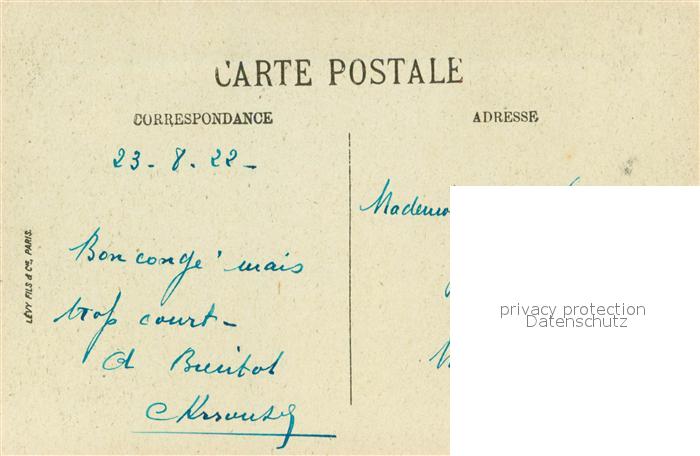 CARTE POSTALE
CORRESPONDANCE
ADRESSE
23 - 8 - 22 -
Mademo
Bon congé mais
trop court -
A Bientot
LÉVY FILS & Cie, PARIS.
privacy protection
Datenschutz